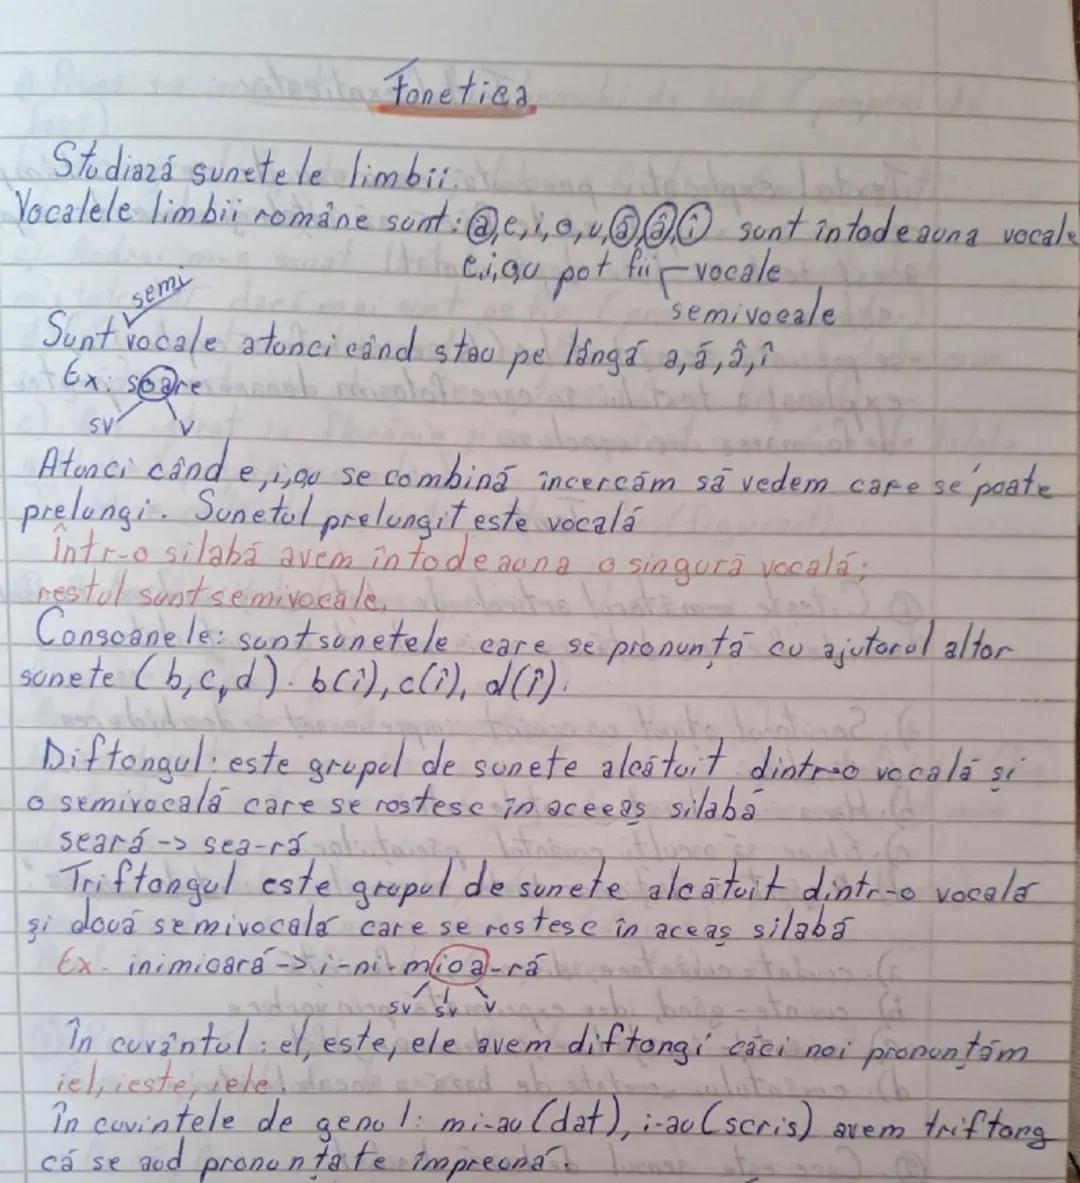 Fonetica
Studiază sunetele limbii.
Vocalele limbii române sunt: a, e, i, o, u, ă, â, î sunt întodeauna vocale
e, i, o, u pot fii vocale
semivocale
semi
Sunt vocale atunci când stau pe lângă a, ă, â, î
Ex: soare
sv v
Atunci când e, i, o, u se combină încercăm să vedem care se poate
prelungi. Sunetul prelungit este vocală
Într-o silabă avem întodeauna o singură vocală;
restul sunt semivocale.
Consoanele: sunt sunetele care se pronunță cu ajutorul altor
sunete (b, c, d). b(î), c(î), d(î).
Diftongul: este grupul de sunete alcătuit dintr-o vocală și
o semivocală care se rostesc în aceeaș silabă
seară -> sea-ră
Triftongul este grupul de sunete alcătuit dintr-o vocală
și două semivocală care se rostesc în aceaș silabă
Ex. inimioară -> i-ni-mioa-ră
sv sv v
În cuvântul: el, este, ele avem diftongi căci noi pronunțăm
iel, ieste, iele!
În cuvintele de genul: mi-au (dat), i-au (scris) avem triftong
că se aud pronunțate împreună.